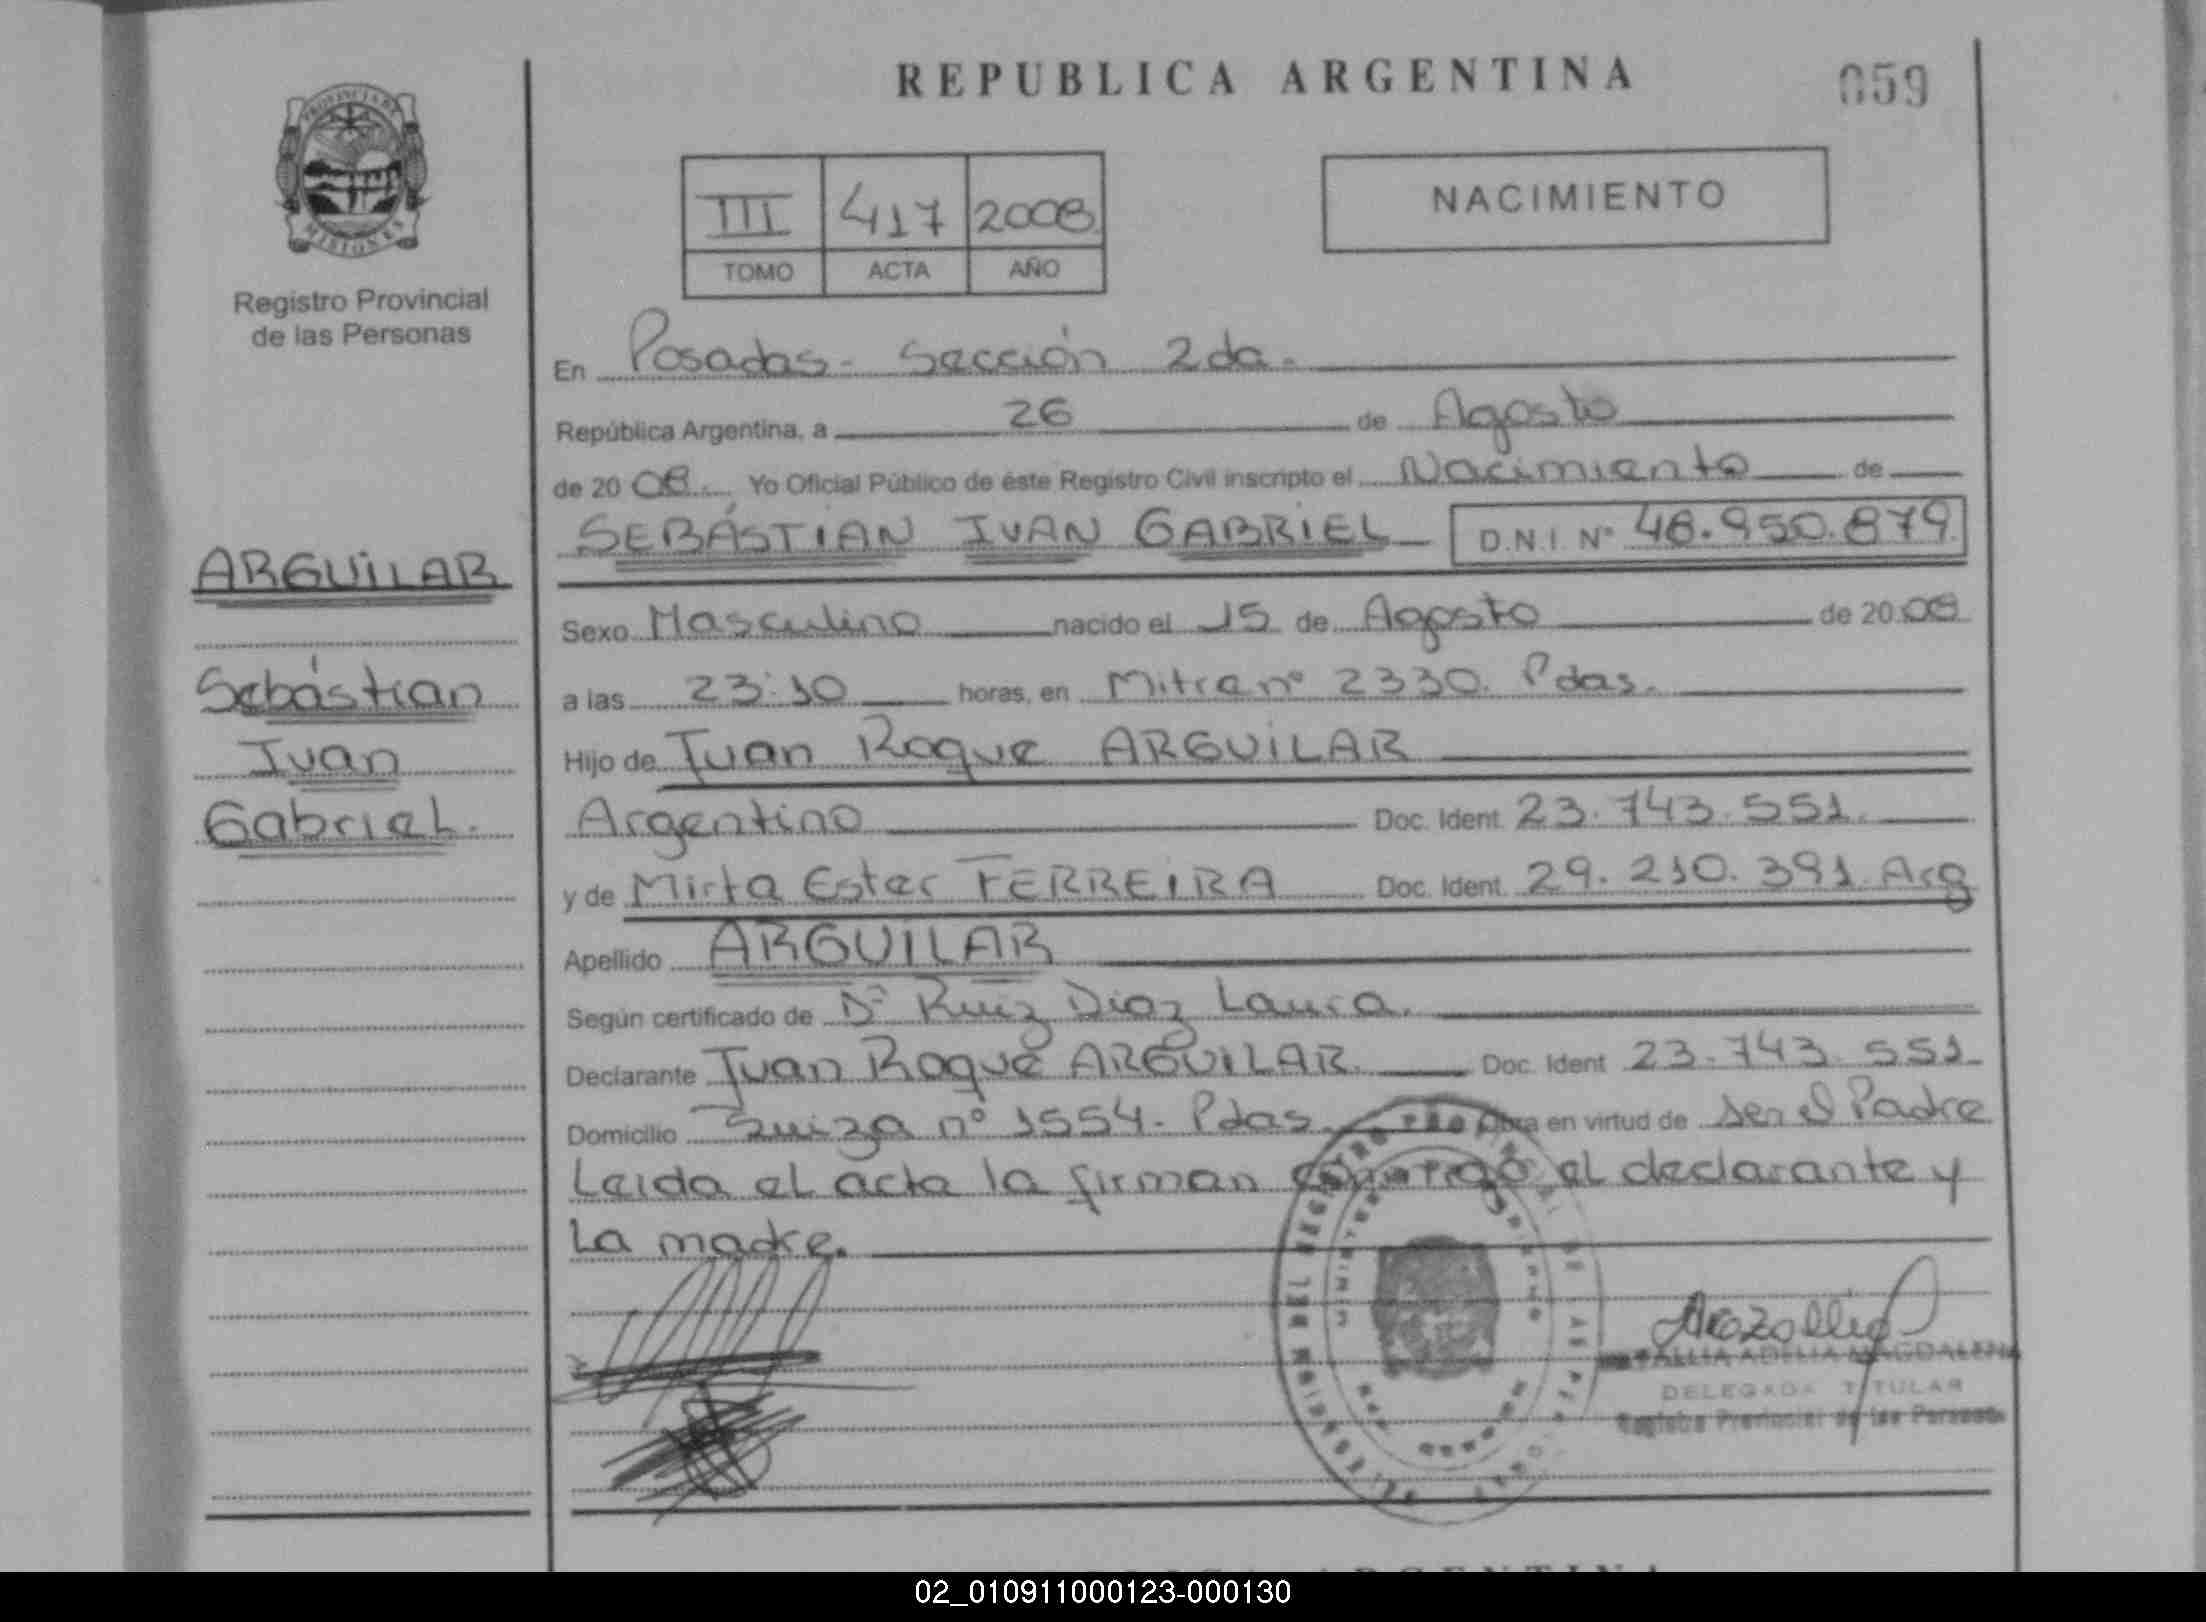 REPUBLICA ARGENTINA
059
PROVINCIA DE
MISIONES
Registro Provincial
de las Personas
III 417 2008
TOMO ACTA AÑO
NACIMIENTO
En Posadas - Sección 2da.
República Argentina, a 26 de Agosto
de 20 08. Yo Oficial Público de éste Registro Civil inscripto el Nacimiento de
SEBÁSTIAN IVAN GABRIEL D.N.I. Nº 48.950.879
ARGUILAR
Sebástian
Ivan
Gabriel.
Sexo Masculino nacido el 15 de Agosto de 20 08
a las 23:10 horas, en Mitre nº 2330. Pdas.
Hijo de Juan Roque ARGUILAR
Argentino Doc. Ident. 23.743.551.
y de Mirta Ester FERREIRA Doc. Ident. 29.210.391. Arg
Apellido ARGUILAR
Según certificado de Dª Ruiz Diaz Laura.
Declarante Juan Roque ARGUILAR. Doc. Ident 23.743.551
Domicilio Suiza nº 1554. Pdas. Obra en virtud de ser el Padre
Leida el acta la firman conmigo el declarante y
la madre.
ADELIA MAGDALENA
DELEGADA TITULAR
Registro Provincial de las Personas
02_010911000123-000130